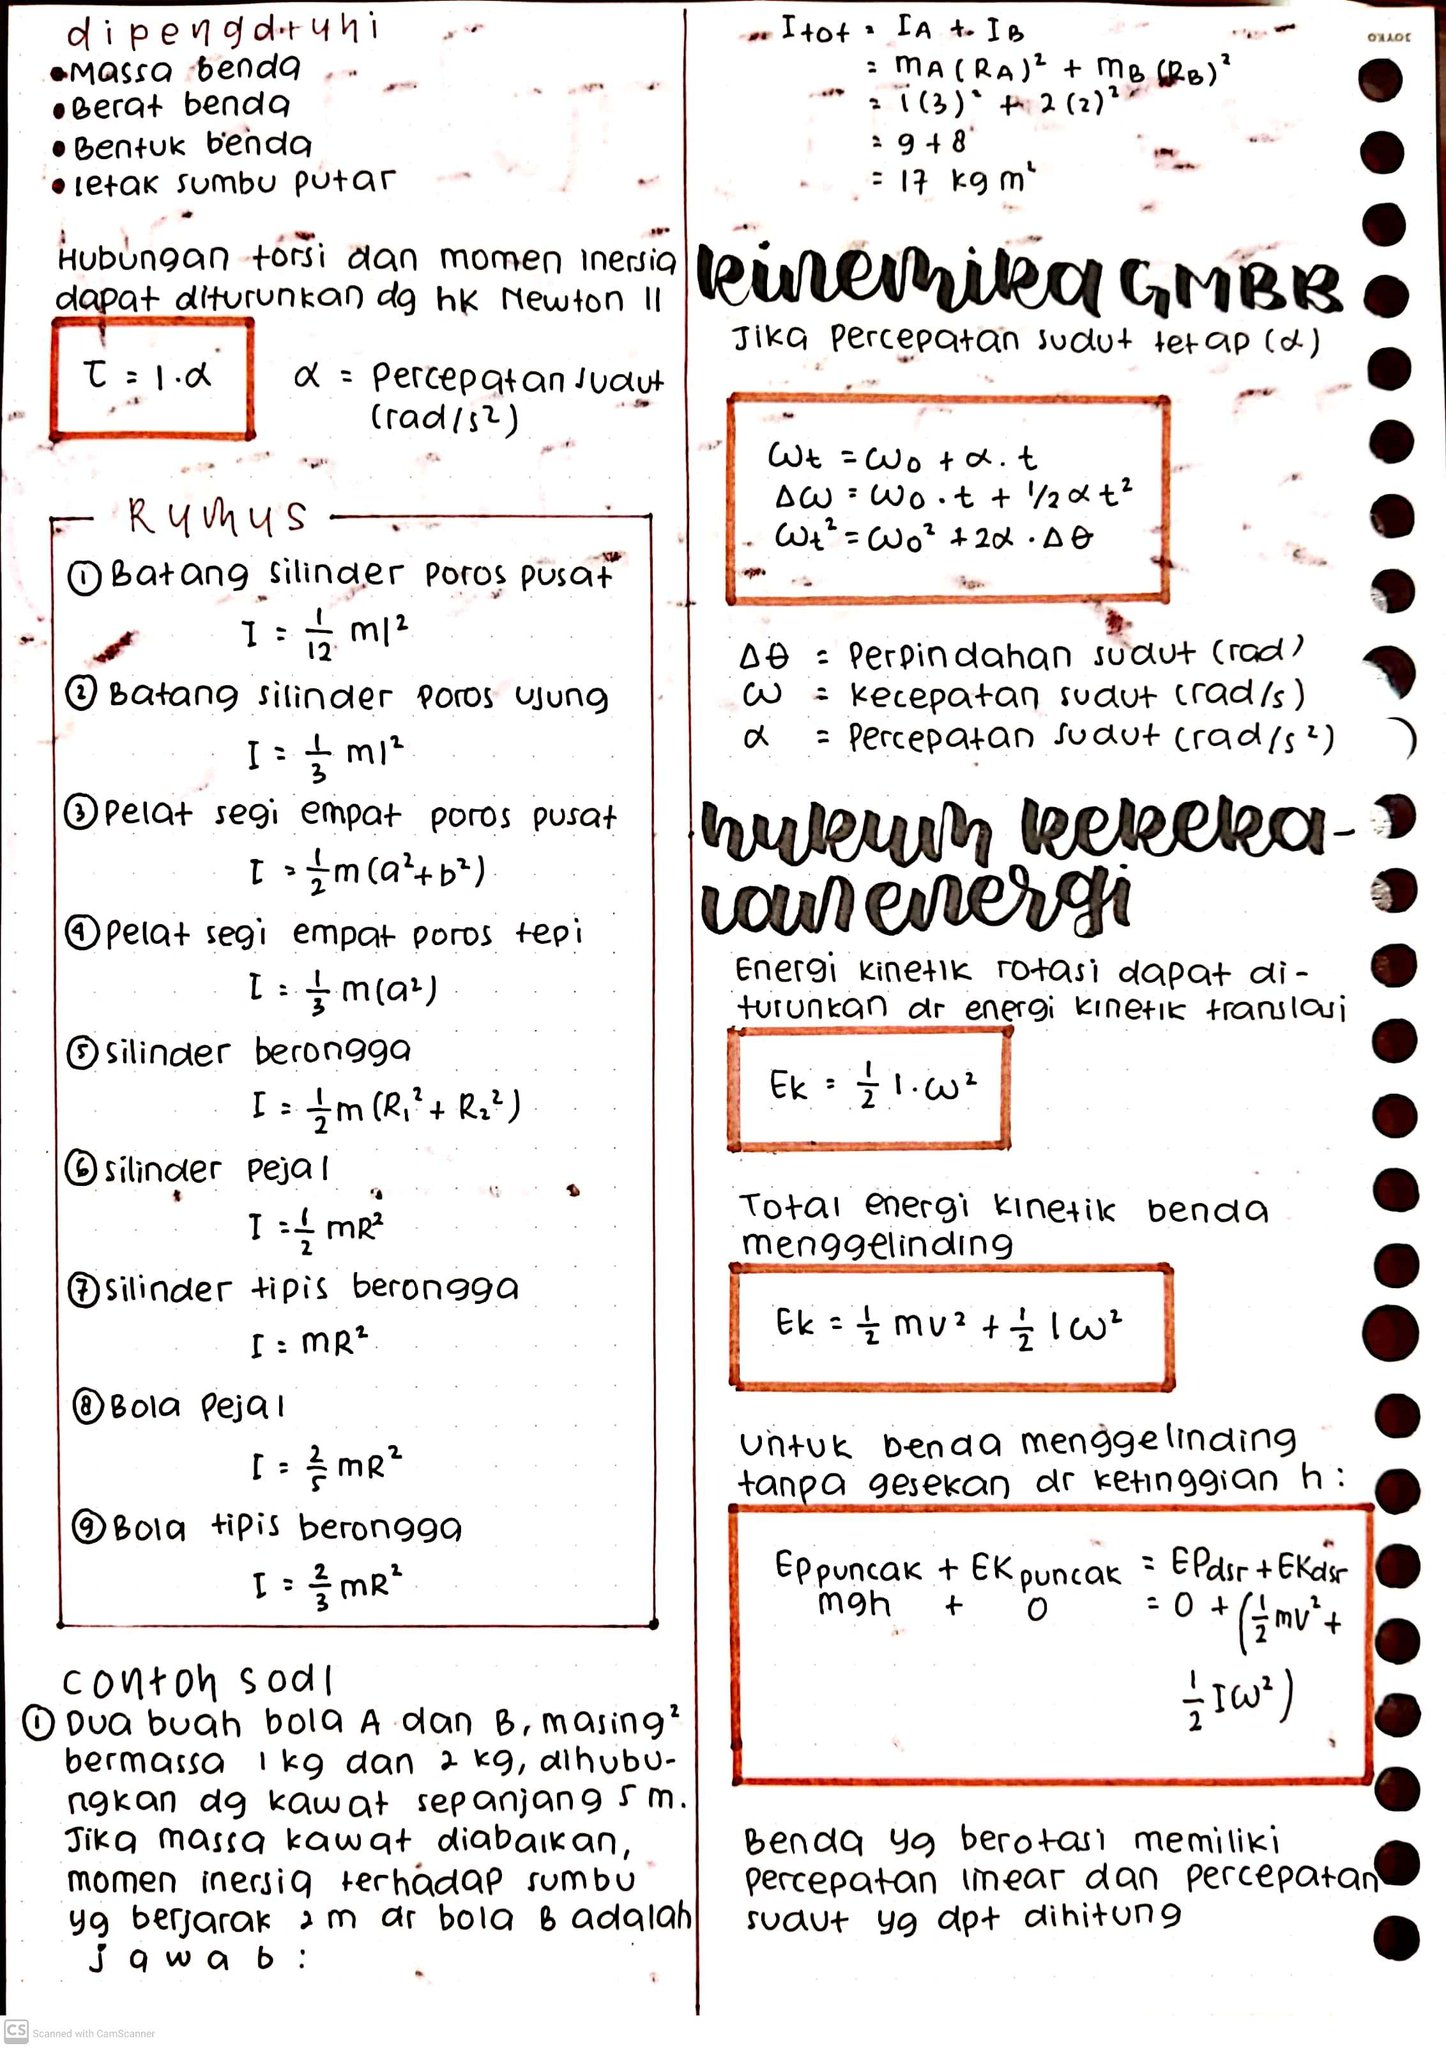 dipengaruhi
• Massa benda
• Berat benda
• Bentuk benda
• letak sumbu putar
Hubungan torsi dan momen inersia
dapat diturunkan dg hk Newton II
τ = I.α
α = percepatan sudut
(rad/s²)
Rumus
① Batang silinder poros pusat
I = 1/12 ml²
② Batang silinder poros ujung
I = 1/3 ml²
③ Pelat segi empat poros pusat
I = 1/2 m(a²+b²)
④ Pelat segi empat poros tepi
I = 1/3 m(a²)
⑤ silinder berongga
I = 1/2 m(R₁² + R₂²)
⑥ silinder pejal
I = 1/2 mR²
⑦ silinder tipis berongga
I = mR²
⑧ Bola pejal
I = 2/5 mR²
⑨ Bola tipis berongga
I = 2/3 mR²
contoh soal
① Dua buah bola A dan B, masing²
bermassa 1 kg dan 2 kg, dihubu-
ngkan dg kawat sepanjang 5 m.
Jika massa kawat diabaikan,
momen inersia terhadap sumbu
yg berjarak 2 m dr bola B adalah
jawab :
Itot = IA + IB
= mA(RA)² + mB(RB)²
= 1(3)² + 2(2)²
= 9 + 8
= 17 kg m²
JOYKO
kinemika GMBB
Jika percepatan sudut tetap (α)
ωt = ωo + α.t
Δω = ωo.t + 1/2 αt²
ωt² = ωo² + 2α.Δθ
Δθ = Perpindahan sudut (rad)
ω = kecepatan sudut (rad/s)
α = percepatan sudut (rad/s²)
hukum kekeka-
lan energi
Energi kinetik rotasi dapat di-
turunkan dr energi kinetik translasi
Ek = 1/2 I.ω²
Total energi kinetik benda
menggelinding
Ek = 1/2 mv² + 1/2 Iω²
untuk benda menggelinding
tanpa gesekan dr ketinggian h :
EPpuncak + EKpuncak = EPdsr + EKdsr
mgh + 0 = 0 + (1/2 mv² +
1/2 Iω²)
Benda yg berotasi memiliki
percepatan linear dan percepatan
sudut yg dpt dihitung
CS Scanned with CamScanner